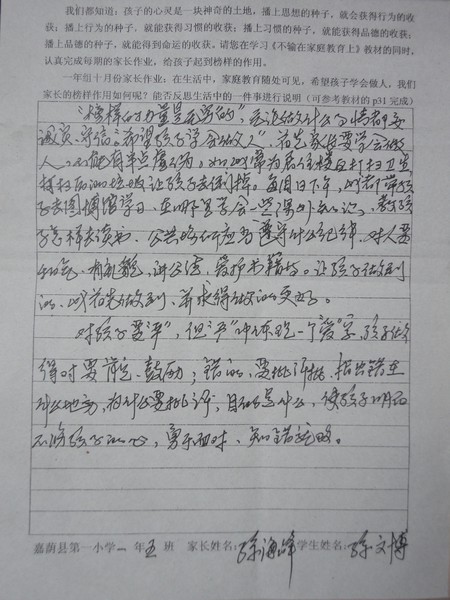 我们都知道：孩子的心灵是一块神奇的土地，播上思想的种子，就会获得行为的收
获；播上行为的种子，就能获得习惯的收获；播上习惯的种子，就能获得品德的收获；
播上品德的种子，就能得到命运的收获。请您在学习《不输在家庭教育上》教材的同时，
认真完成每期的家长作业，给孩子起到榜样的作用。
一年组十月份家长作业：在生活中，家庭教育随处可见，希望孩子学会做人，我们
家长的榜样作用如何呢？能否反思生活中的一件事进行说明（可参考教材的 p31 完成）
“榜样的力量是无穷的”，无论做什么事情都要
诚实、守信。希望孩子学会做人，首先家长要学会做
人，不能有半点
打扫卫生
垃圾让孩子去倒掉。每周日下午，带孩
子去图博馆学习，在哪里学会一些课外知识，教孩
子怎样去读书，公共场所应当遵守什么纪律，对人要
有礼貌，讲公德，爱护书籍等。让孩子做到
的，首先做到，并求得做的更好。
对孩子要“严”，但“严”中体现一个“爱”字，孩子做
得对要肯定、鼓励；错的，要批评，指出错在
什么地方，为什么要批评，目的是什么，使孩子明白
不伤孩子的心，勇于面对，知错就改。
嘉荫县第一小学一年五班 家长姓名：徐海峰 学生姓名：徐文博